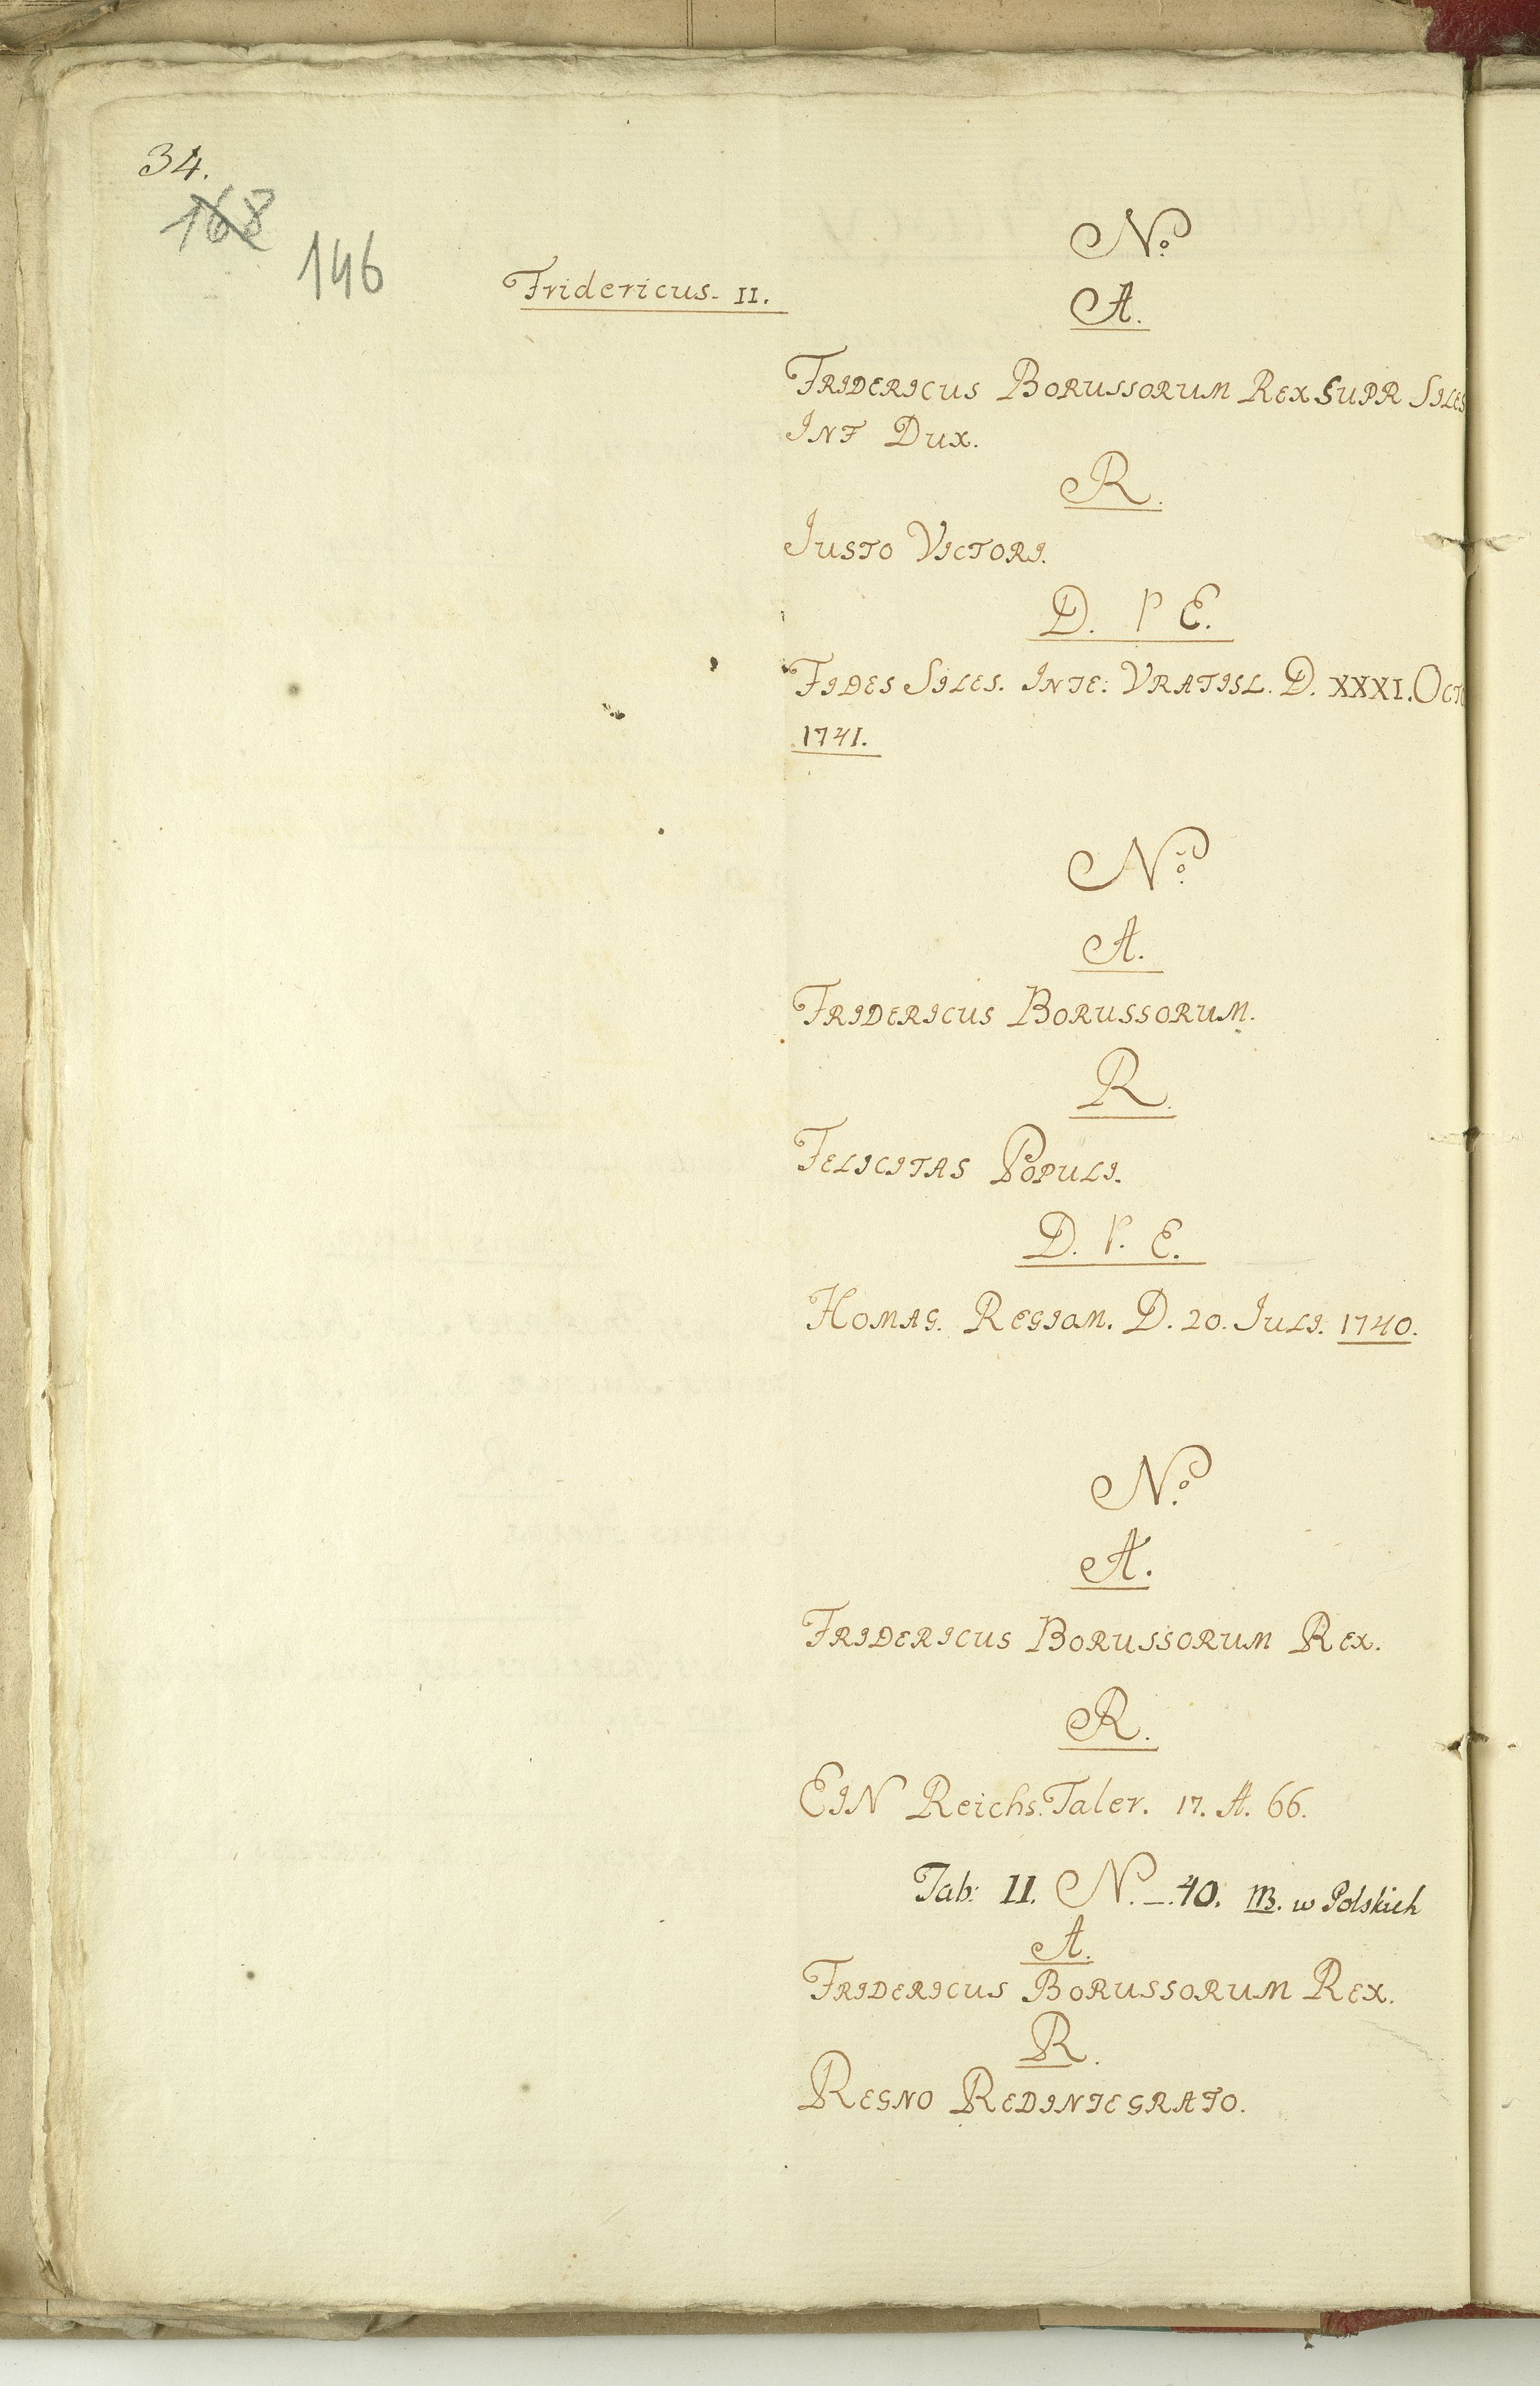 34.
168
146
Fridericus. II.
No.
A.
FRIDERICUS BORUSSORUM REX SUPR SILES
INF DUX.
R.
JUSTO VICTORI.
D. P E.
FIDES SILES. INTE: VRATISL. D. XXXI. OCTO
1741.
No.
A.
FRIDERICUS BORUSSORUM.
R.
FELICITAS POPULI.
D. P. E.
HOMAG. REGIOM. D. 20. JULI. 1740.
No.
A.
FRIDERICUS BORUSSORUM REX.
R.
EIN Reichs.Taler. 17. A. 66.
Tab: II. N. — 40. m. w Polskich
A.
FRIDERICUS BORUSSORUM REX.
R.
REGNO REDINTEGRATO.